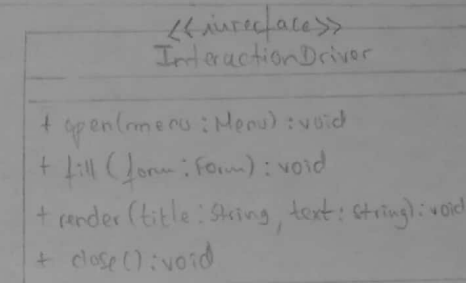 <<interface>>
InteractionDriver
+ open(menu : Menu) : void
+ fill (form : Form) : void
+ render (title : String, text : string) : void
+ close() : void